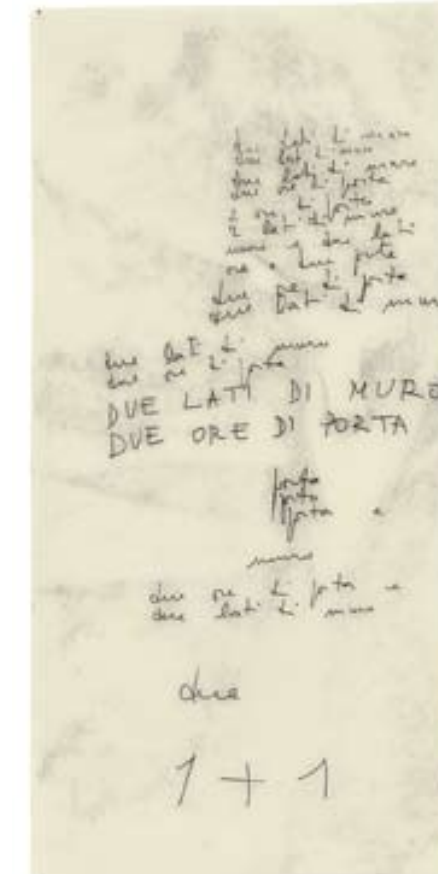 due lati di muro
due lati di muro
due lati di muro
due ore di porta
2 ore di porta
2 lati di muro
muro 2 due lati
ore due porte
due ore di porta
due lati di muro
due lati di muro
due ore di porta
DUE LATI DI MURO
DUE ORE DI PORTA
porta
porta
porta e
muro
due ore di porta e
due lati di muro
due
1 + 1